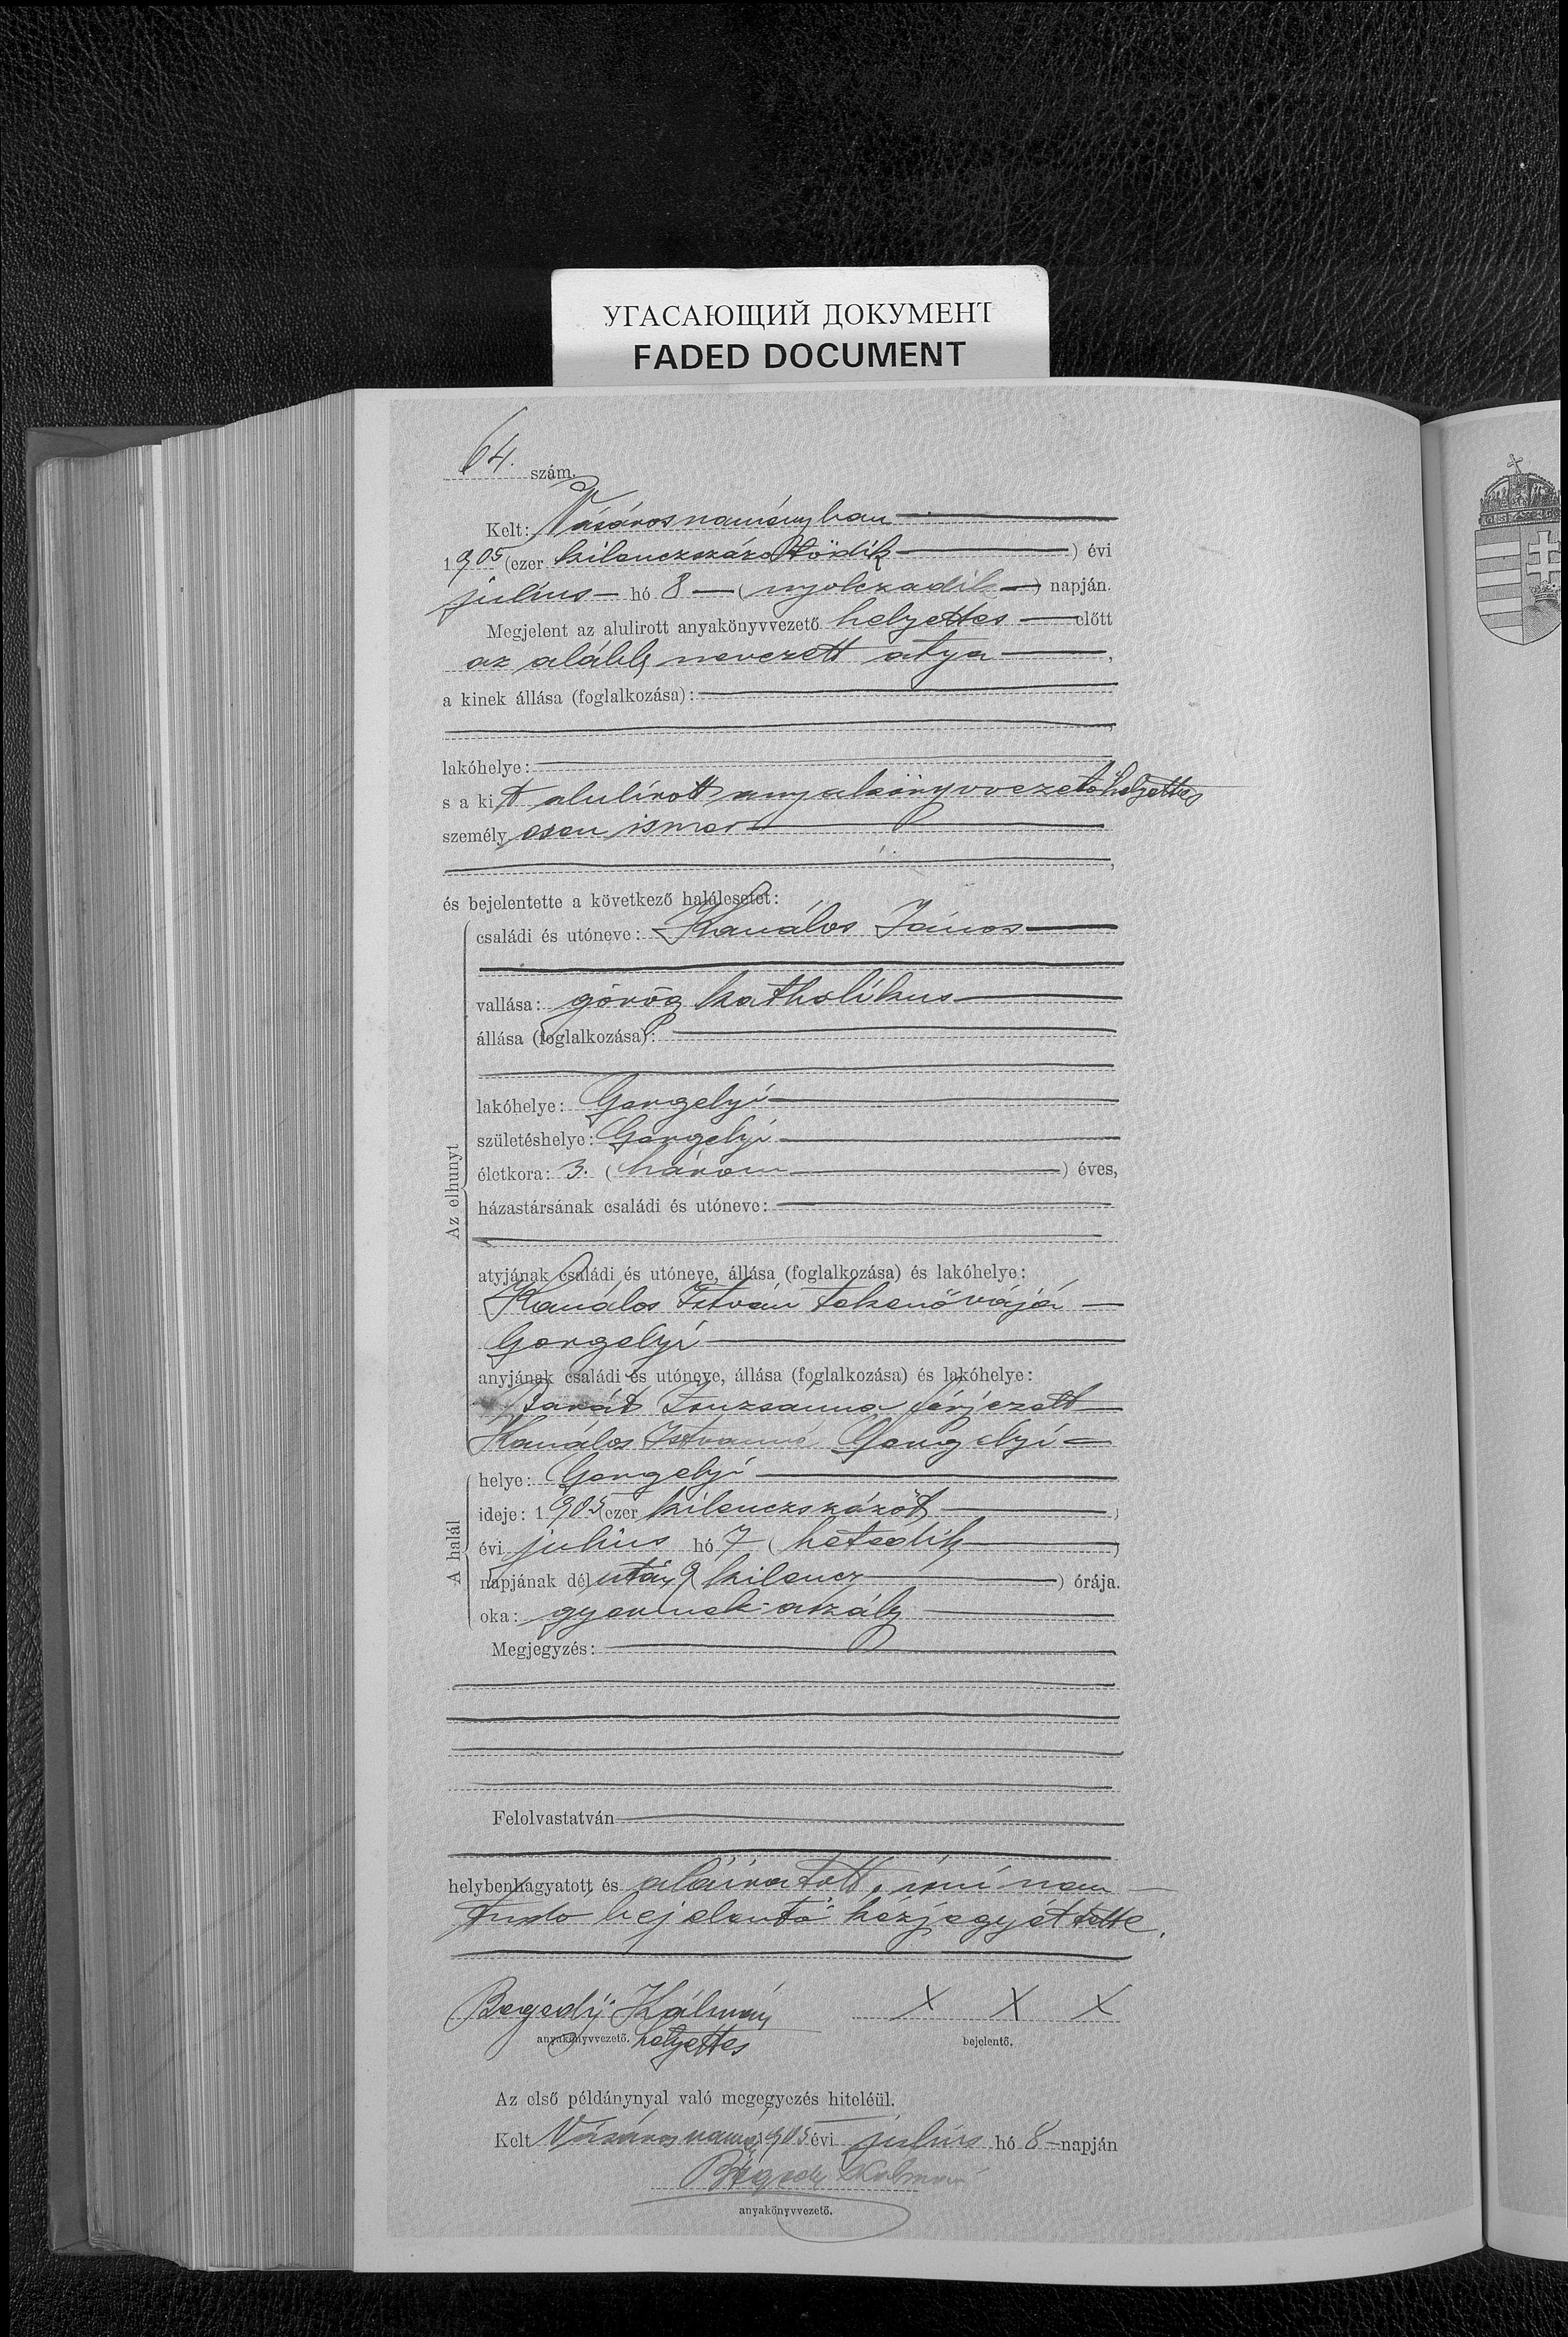 УГАСАЮЩИЙ ДОКУМЕНТ
FADED DOCUMENT
64. szám.
Kelt: Vásárosnaményban
1905 (ezer kilenczszázötödik ) évi
julius hó 8 ( nyolczadik ) napján.
Megjelent az alulirott anyakönyvvezető helyettes előtt
az alább nevezett atya ,
a kinek állása (foglalkozása):
lakóhelye:
s a kit alulírott anyakönyvvezetőhelyettes
személyesen ismer
és bejelentette a következő halálesetet:
Az elhunyt
családi és utóneve: Kanálos János
vallása: görög katholikus
állása (foglalkozása):
lakóhelye: Gergelyi
születéshelye: Gergelyi
életkora: 3. ( három ) éves,
házastársának családi és utóneve:
atyjának családi és utóneve, állása (foglalkozása) és lakóhelye:
Kanálos István tekenővájó
Gergelyi
anyjának családi és utóneve, állása (foglalkozása) és lakóhelye:
Zsuzsanna férjezett
Kanálos Istvánné Gergelyi
A halál
helye: Gergelyi
ideje: 1905 (ezer kilenczszázöt )
évi julius hó 7 ( hetedik )
napjának délután 9 ( kilencz ) órája.
oka: gyermek-aszály
Megjegyzés:
Felolvastatván
helybenhagyatott és aláíratott, írni nem
tudo bejelentő kézjegyét tette.
Begedÿ Kálmán X X X
anyakönyvvezető. helyettes bejelentő.
Az első példánynyal való megegyezés hiteléül.
Kelt Vásárosnamé 1905 évi julius hó 8 napján
Begedy Kálmán
anyakönyvvezető.